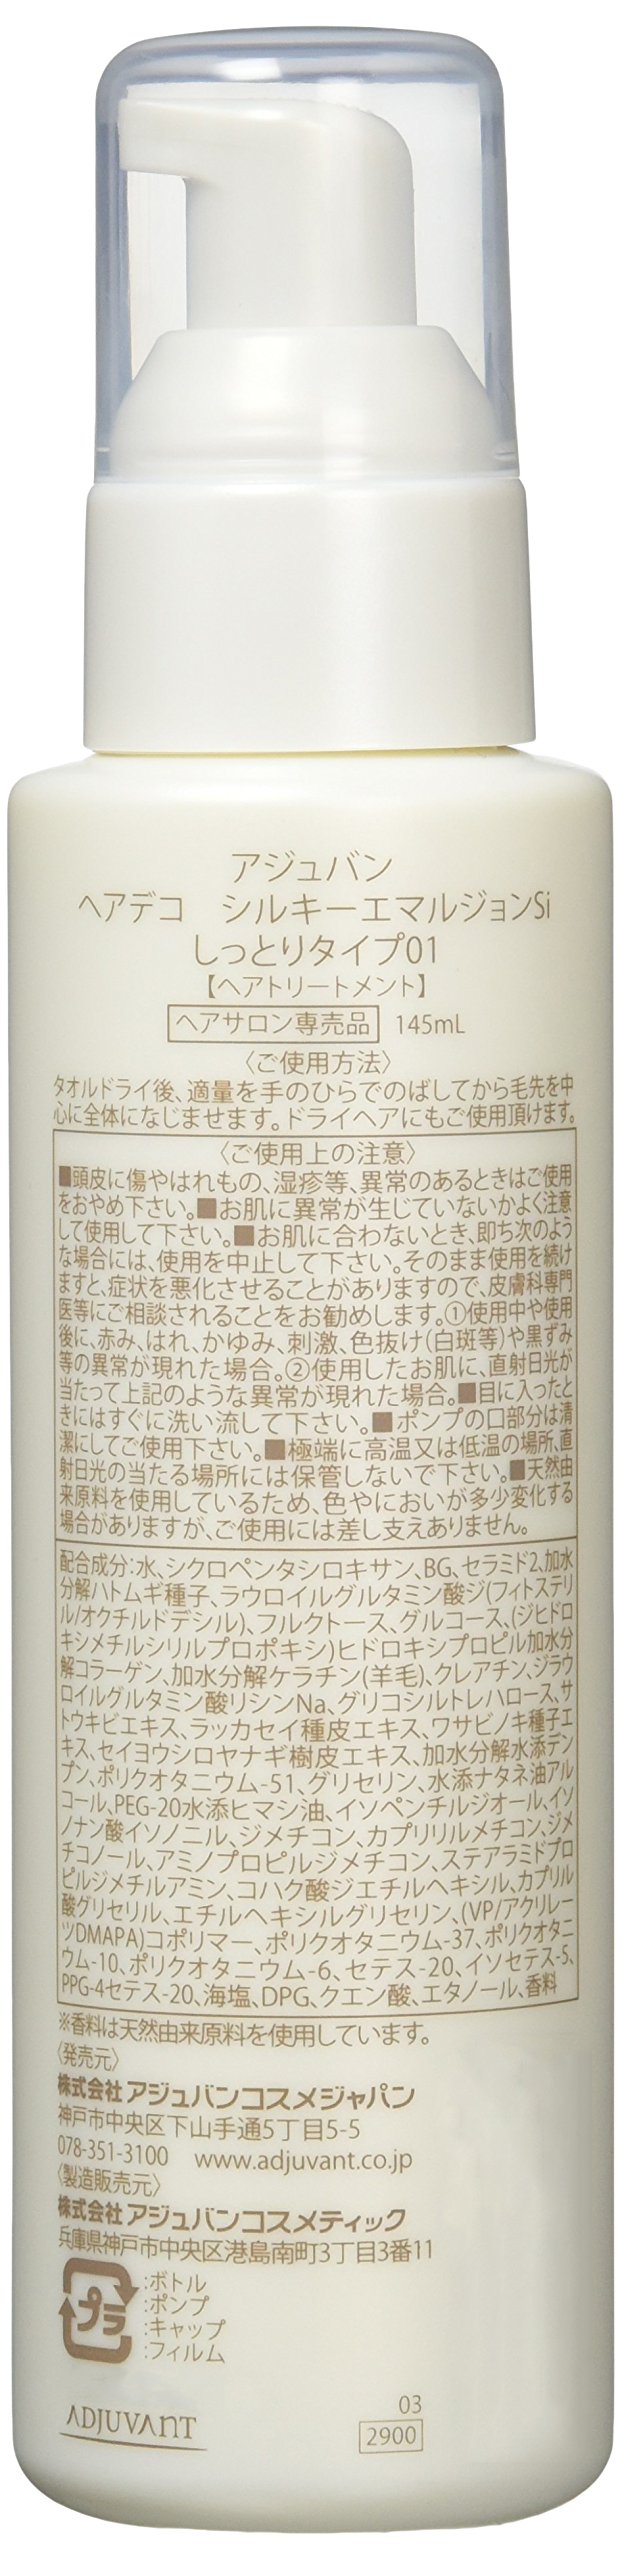 アジュバン
ヘアデコ　シルキーエマルジョンSi
しっとりタイプ01
【ヘアトリートメント】
ヘアサロン専売品 145mL
〈ご使用方法〉
タオルドライ後、適量を手のひらでのばしてから毛先を中
心に全体になじませます。ドライヘアにもご使用頂けます。
〈ご使用上の注意〉
■頭皮に傷やはれもの、湿疹等、異常のあるときはご使用
をおやめ下さい。■お肌に異常が生じていないかよく注意
して使用して下さい。■お肌に合わないとき、即ち次のよう
な場合には、使用を中止して下さい。そのまま使用を続け
ますと、症状を悪化させることがありますので、皮膚科専門
医等にご相談されることをお勧めします。①使用中や使用
後に、赤み、はれ、かゆみ、刺激、色抜け(白斑等)や黒ずみ
等の異常が現れた場合。②使用したお肌に、直射日光が
当たって上記のような異常が現れた場合。■目に入ったと
きにはすぐに洗い流して下さい。■ポンプの口部分は清
潔にしてご使用下さい。■極端に高温又は低温の場所、直
射日光の当たる場所には保管しないで下さい。■天然由
来原料を使用しているため、色やにおいが多少変化する
場合がありますが、ご使用には差し支えありません。
配合成分：水、シクロペンタシロキサン、BG、セラミド2、加水
分解ハトムギ種子、ラウロイルグルタミン酸ジ(フィトステリ
ル/オクチルドデシル)、フルクトース、グルコース、(ジヒドロ
キシメチルシリルプロポキシ)ヒドロキシプロピル加水分
解コラーゲン、加水分解ケラチン(羊毛)、クレアチン、ジラウ
ロイルグルタミン酸リシンNa、グリコシルトレハロース、サ
トウキビエキス、ラッカセイ種皮エキス、ワサビノキ種子エ
キス、セイヨウシロヤナギ樹皮エキス、加水分解水添デン
プン、ポリクオタニウム-51、グリセリン、水添ナタネ油アル
コール、PEG-20水添ヒマシ油、イソペンチルジオール、イソ
ノナン酸イソノニル、ジメチコン、カプリリルメチコン、ジメ
チコノール、アミノプロピルジメチコン、ステアラミドプロ
ピルジメチルアミン、コハク酸ジエチルヘキシル、カプリル
酸グリセリル、エチルヘキシルグリセリン、(VP/アクリレー
ツDMAPA)コポリマー、ポリクオタニウム-37、ポリクオタニ
ウム-10、ポリクオタニウム-6、セテス-20、イソセテス-5、
PPG-4セテス-20、海塩、DPG、クエン酸、エタノール、香料
※香料は天然由来原料を使用しています。
〈発売元〉
株式会社アジュバンコスメジャパン
神戸市中央区下山手通5丁目5-5
078-351-3100　www.adjuvant.co.jp
〈製造販売元〉
株式会社アジュバンコスメティック
兵庫県神戸市中央区港島南町3丁目3番11
プラ
：ボトル
：ポンプ
：キャップ
：フィルム
ADJUVANT
03
2900